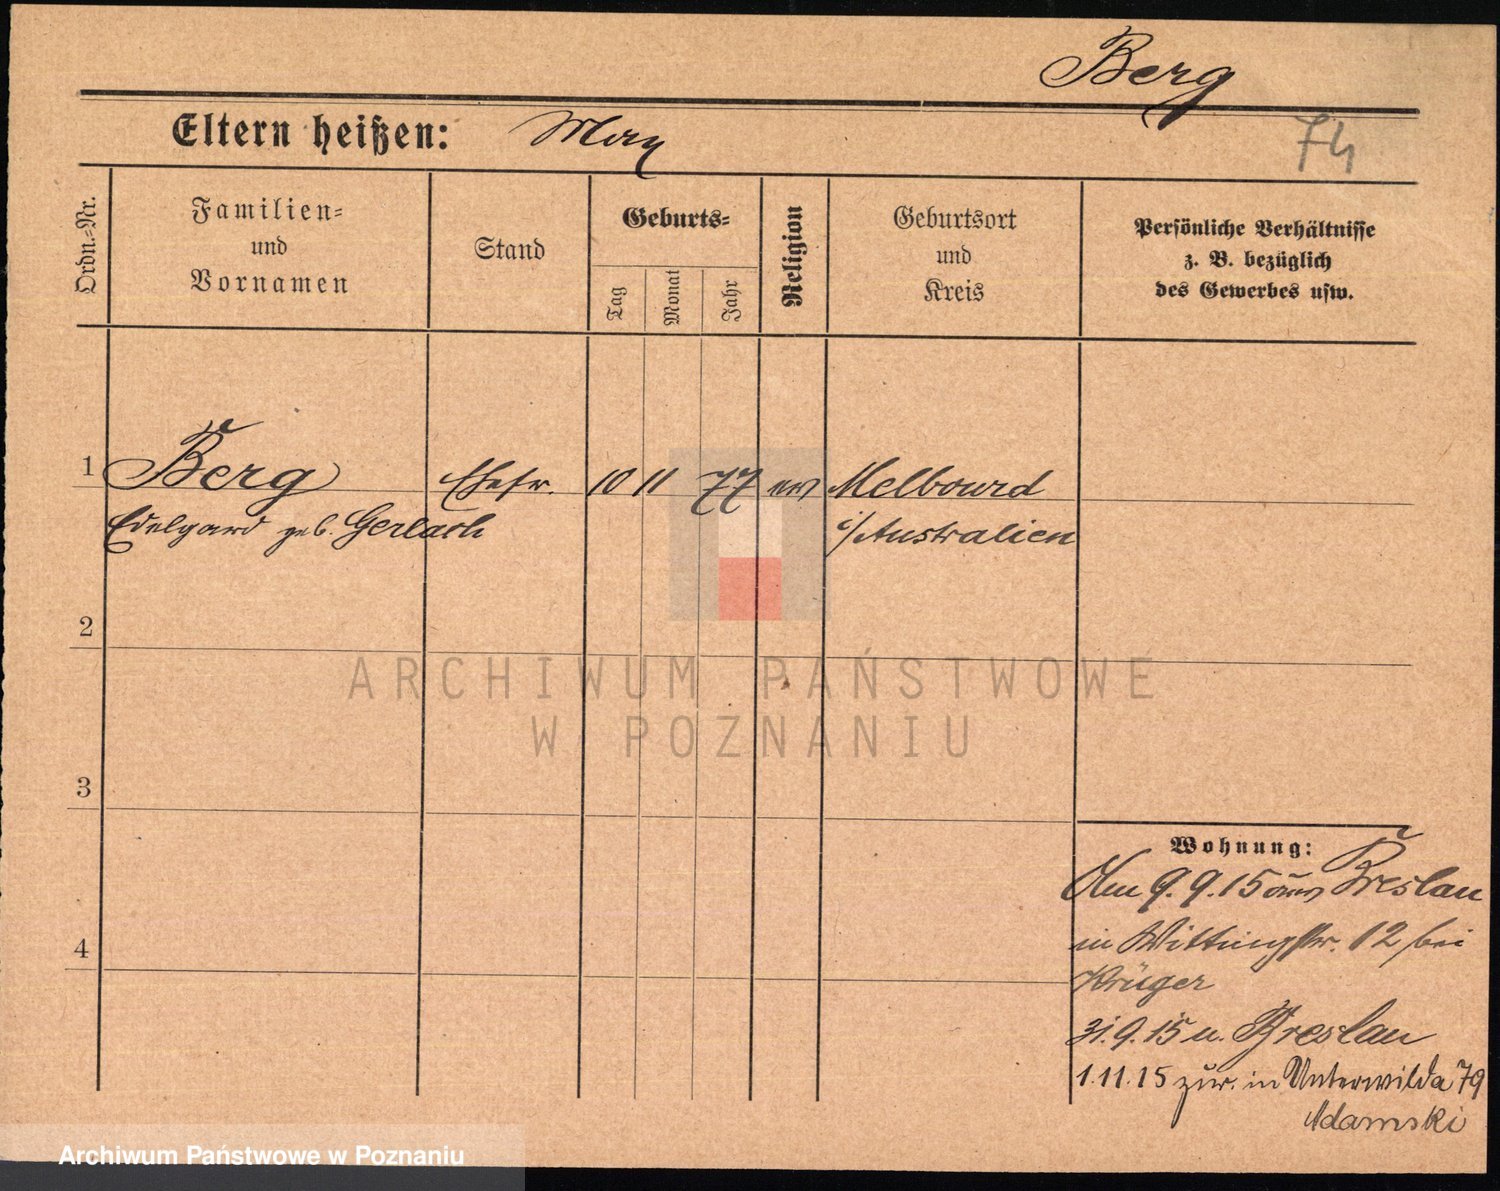 Berg
Eltern heißen: Max
74
Ordn.-Nr.
Familien-
und
Vornamen
Stand
Geburts-
Tag
Monat
Jahr
Religion
Geburtsort
und
Kreis
Persönliche Verhältnisse
z. B. bezüglich
des Gewerbes usw.
1 Berg Ehefr. 10 11 77 ev Melbourd
Edelgard geb. Gerlach i/Australien
2
3
4
Wohnung:
Am 9.9.15 aus Breslau
in Wittingstr. 12 bei
Krüger
31.9.15 n. Breslau
1.11.15 zur. in Unterwilda 79
Adamski
ARCHIWUM PAŃSTWOWE
W POZNANIU
Archiwum Państwowe w Poznaniu